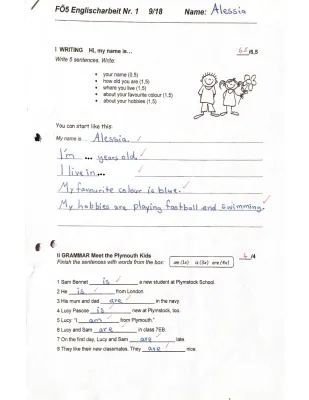 FÖ5 Englischarbeit Nr. 1 9/18 Name: Alessia
I WRITING Hi, my name is… 6,5/6,5
Write 5 sentences. Write:
• your name (0,5)
• how old you are (1,5)
• where you live (1,5)
• about your favourite colour (1,5)
• about your hobbies (1,5)
You can start like this:
My name is Alessia.
I'm ... years old.
I live in...
My favourite colour is blue.
My hobbies are playing football and swimming.
II GRAMMAR Meet the Plymouth Kids 4/4
Finish the sentences with words from the box: am (1x) is (3x) are (4x)
1 Sam Bennet is a new student at Plymstock School.
2 He is from London.
3 His mum and dad are in the navy.
4 Lucy Pascoe is new at Plymstock, too.
5 Lucy: "I am from Plymouth."
6 Lucy and Sam are in class 7EB.
7 On the first day, Lucy and Sam are late.
8 They like their new classmates. They are nice.